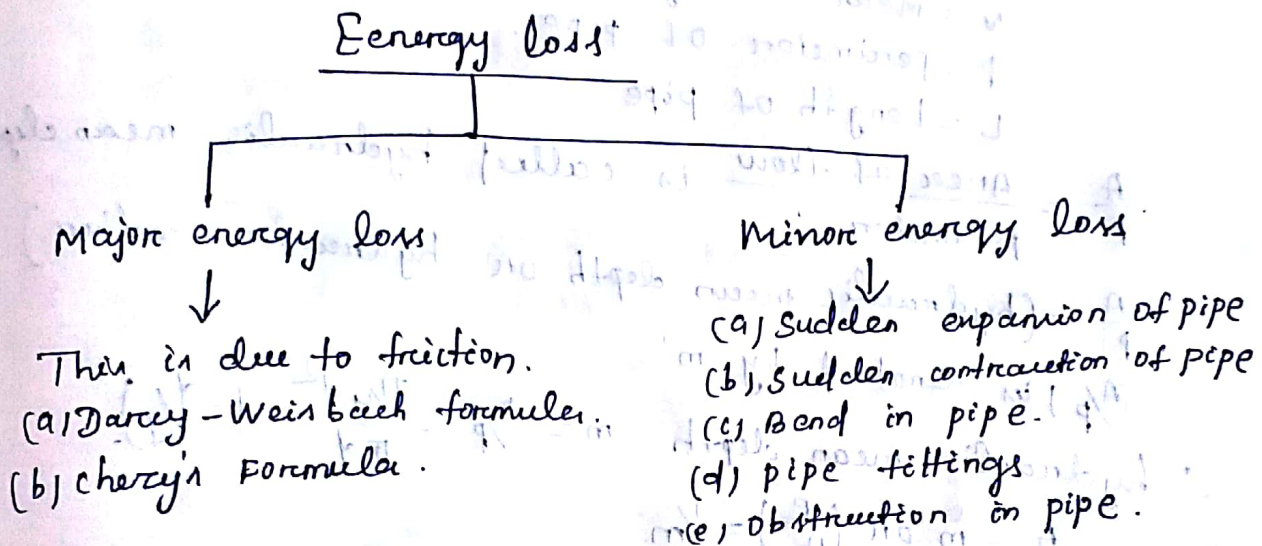 Eenergy loss
Major energy loss
Minor energy loss
This is due to friction.
(a) Darcy-Weisbach formula.
(b) Chezy's Formula.
(a) Sudden expansion of pipe
(b) Sudden contraction of pipe
(c) Bend in pipe.
(d) pipe fittings
(e) obstruction in pipe.